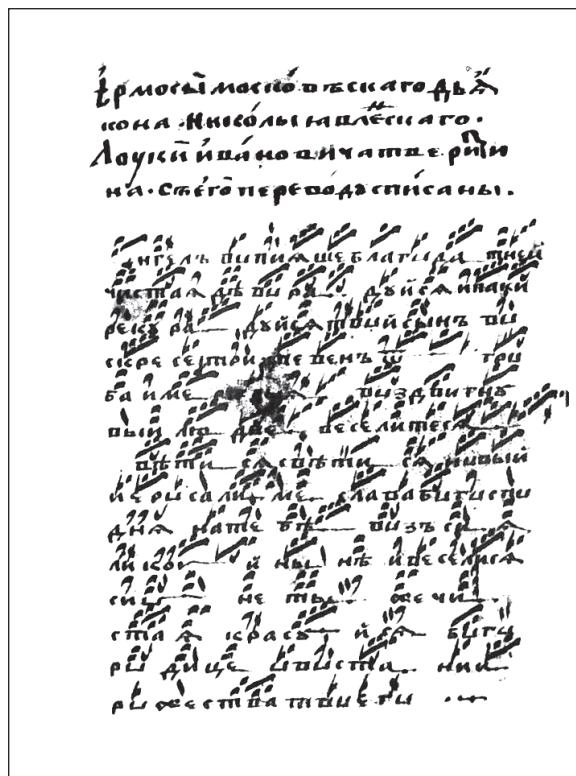 Ермосы московъскаго дья
кона Николы явлескаго.
Лоукӣ ивановича твери
на. съ его переводу списаны.
Ангелъ вопияше благода тней
чистая дѣво ра дуйся и паки
реку ра дуйся твой сынъ во
скресе дневенъ ѿ гро
ба и ме воздвигнѣ
выи лю дие веселитеся
свѣти ся свѣти ся новый
иерусали ме слава бо госпо
дня на тебѣ возъси я
лико й ны нѣ и веселися
сио не ты же чи
стая красу йся бого
ро дице о воста нии
рожества твоего